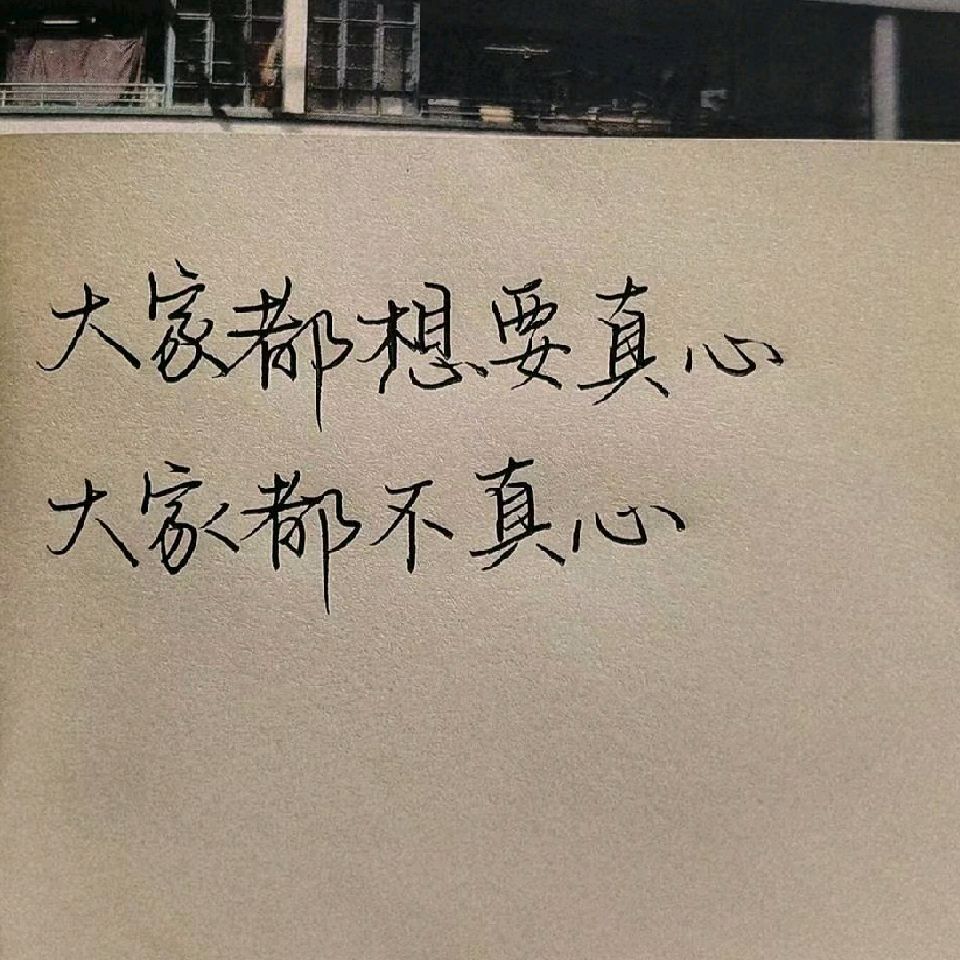 大家都想要真心
大家都不真心